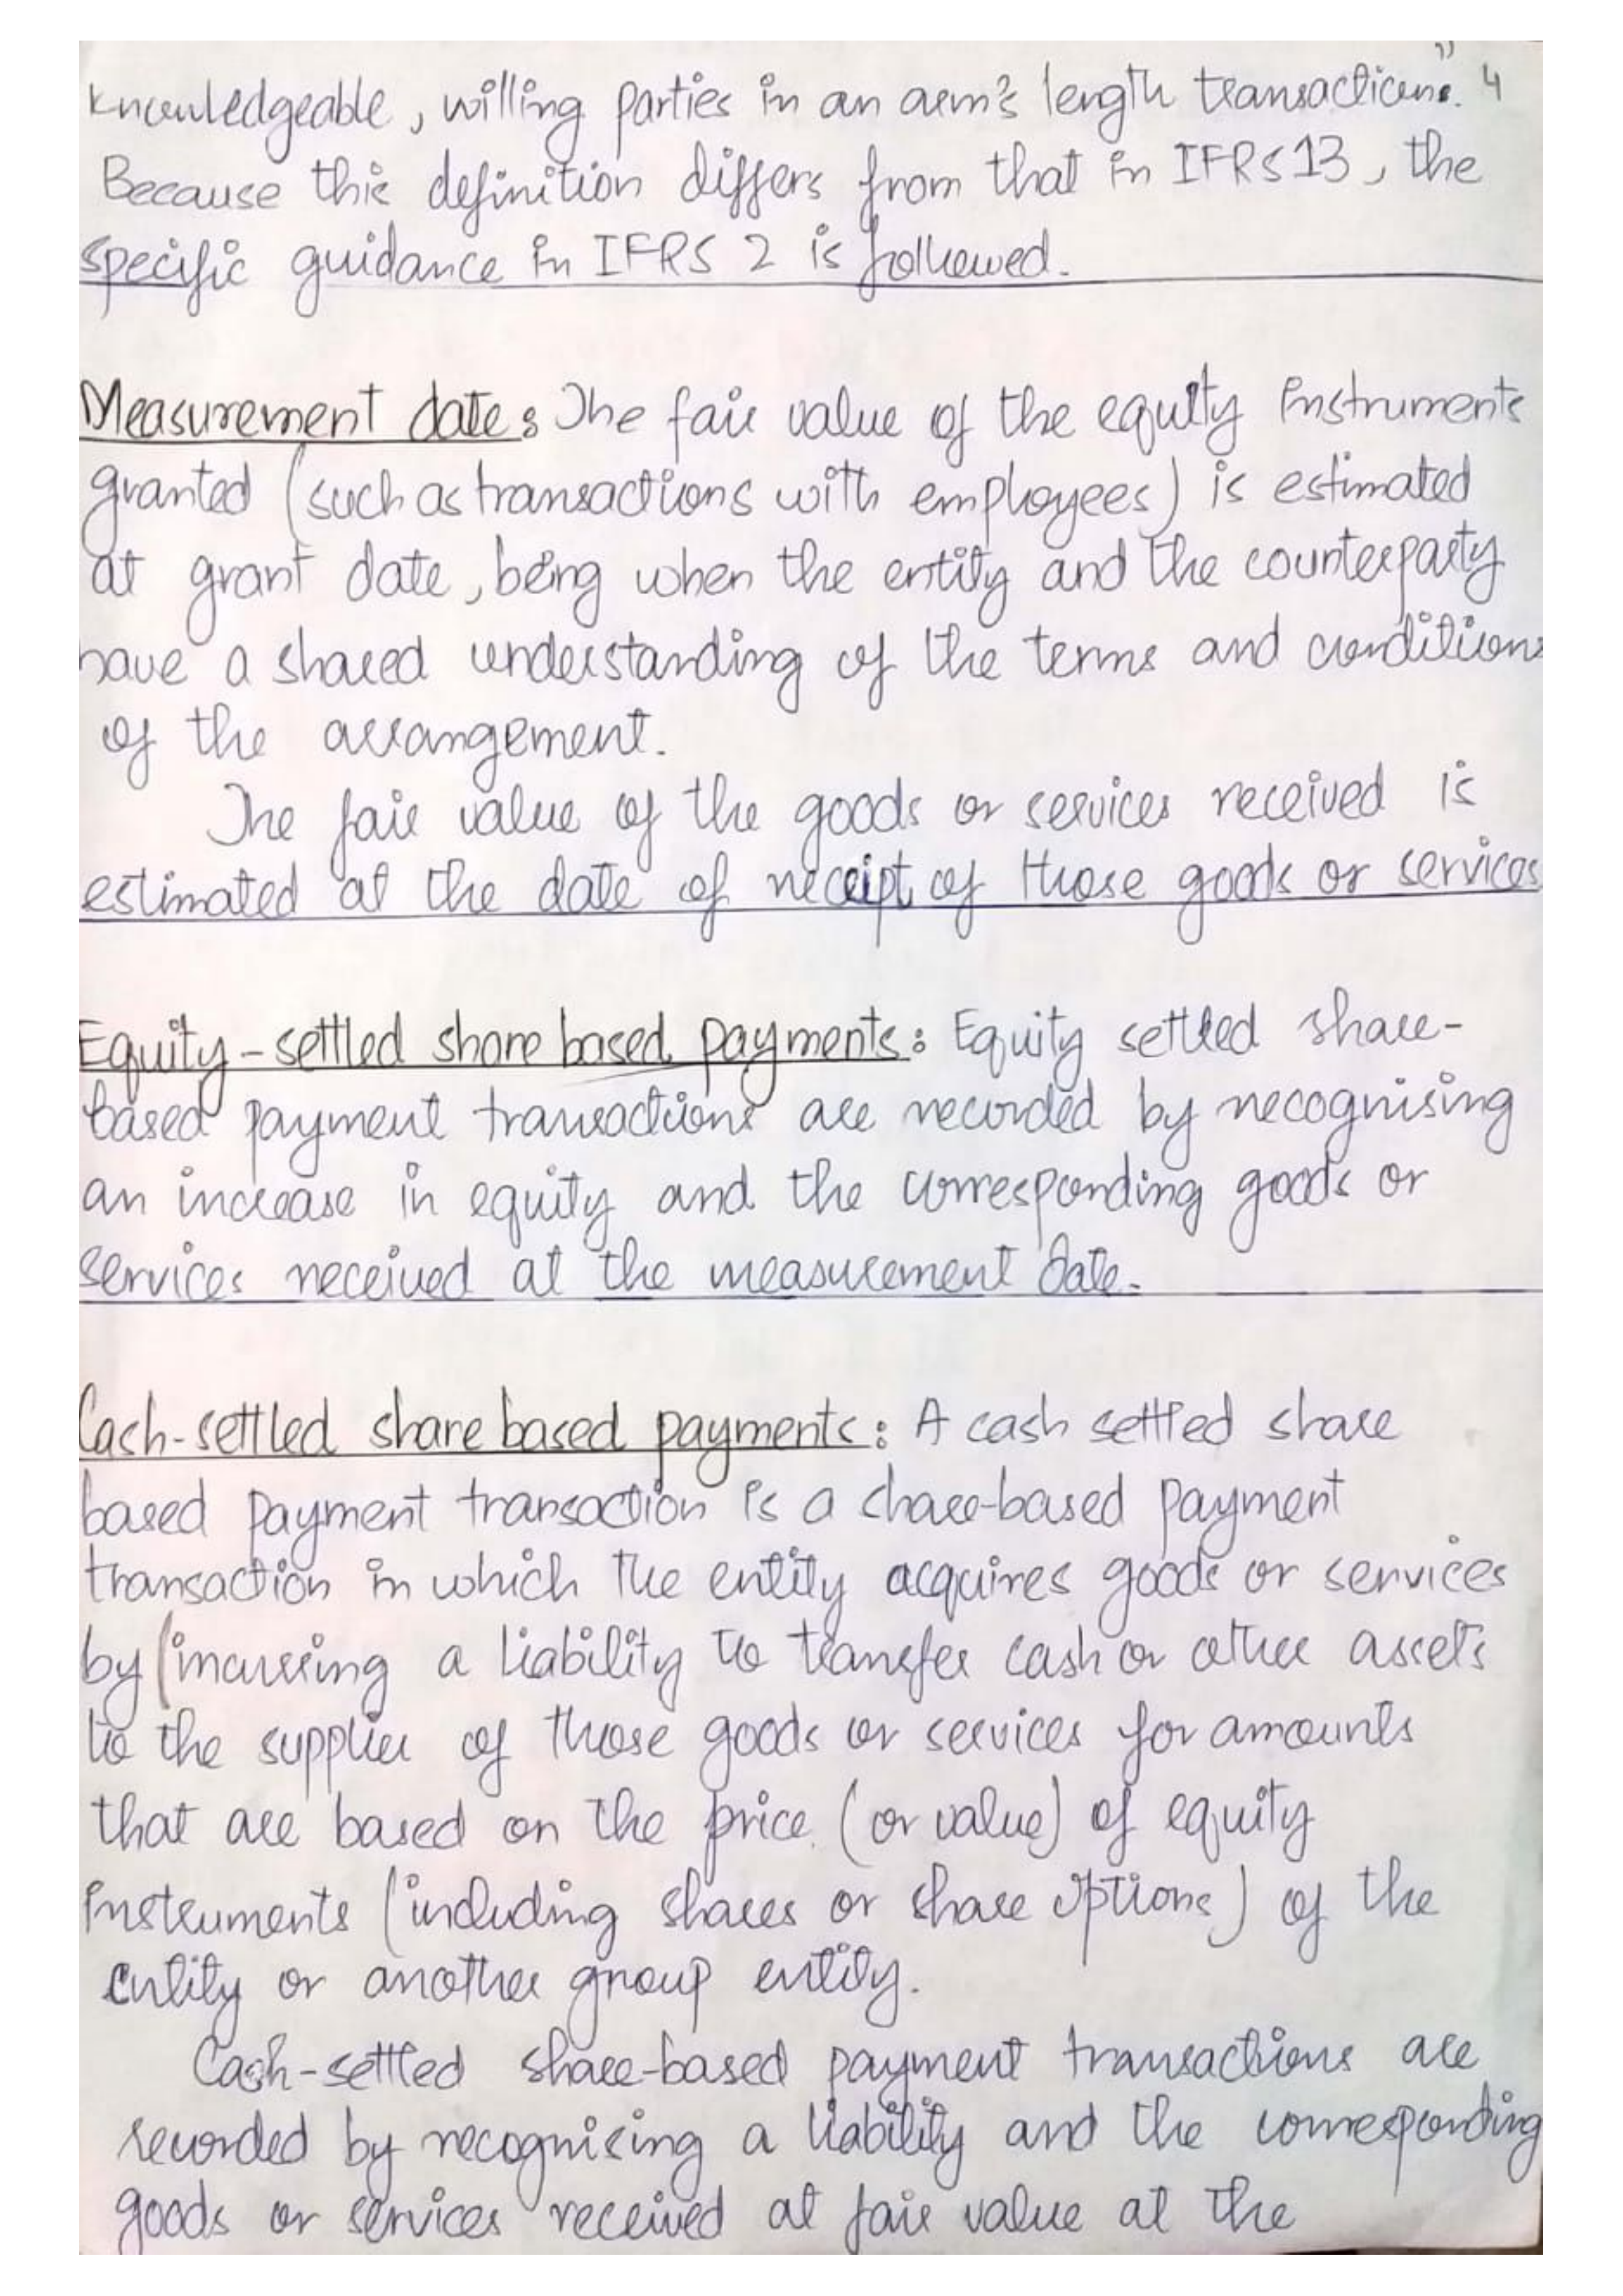 knowledgeable, willing parties in an arm's length transactions." 4
Because this definition differs from that in IFRS 13, the
specific guidance in IFRS 2 is followed.
Measurement date: The fair value of the equity instruments
granted (such as transactions with employees) is estimated
at grant date, being when the entity and the counterparty
have a shared understanding of the terms and conditions
of the arrangement.
The fair value of the goods or services received is
estimated at the date of receipt of those goods or services
Equity-settled share based payments: Equity settled share-
based payment transactions are recorded by recognising
an increase in equity and the corresponding goods or
services received at the measurement date.
Cash-settled share based payments: A cash settled share
based payment transaction is a share-based payment
transaction in which the entity acquires goods or services
by (incurring a liability to transfer cash or other assets
to the supplier of those goods or services for amounts
that are based on the price (or value) of equity
instruments (including shares or share options) of the
entity or another group entity.
Cash-settled share-based payment transactions are
recorded by recognising a liability and the corresponding
goods or services received at fair value at the